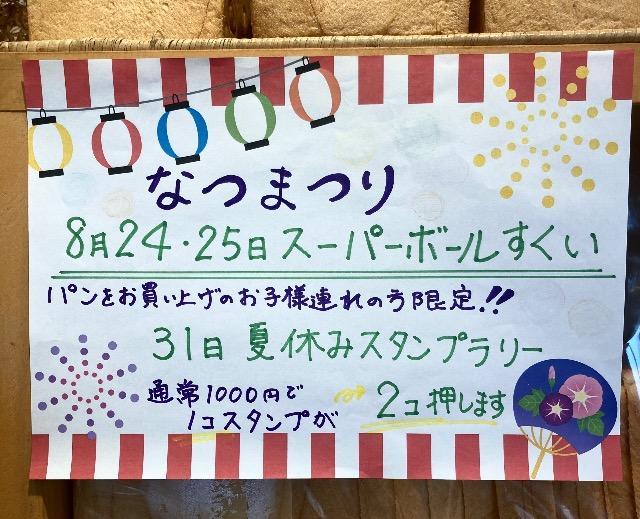 なつまつり
8月24・25日スーパーボールすくい
パンをお買い上げのお子様連れの方限定!!
31日 夏休みスタンプラリー
通常1000円で
1コスタンプが
⇒ 2コ押します